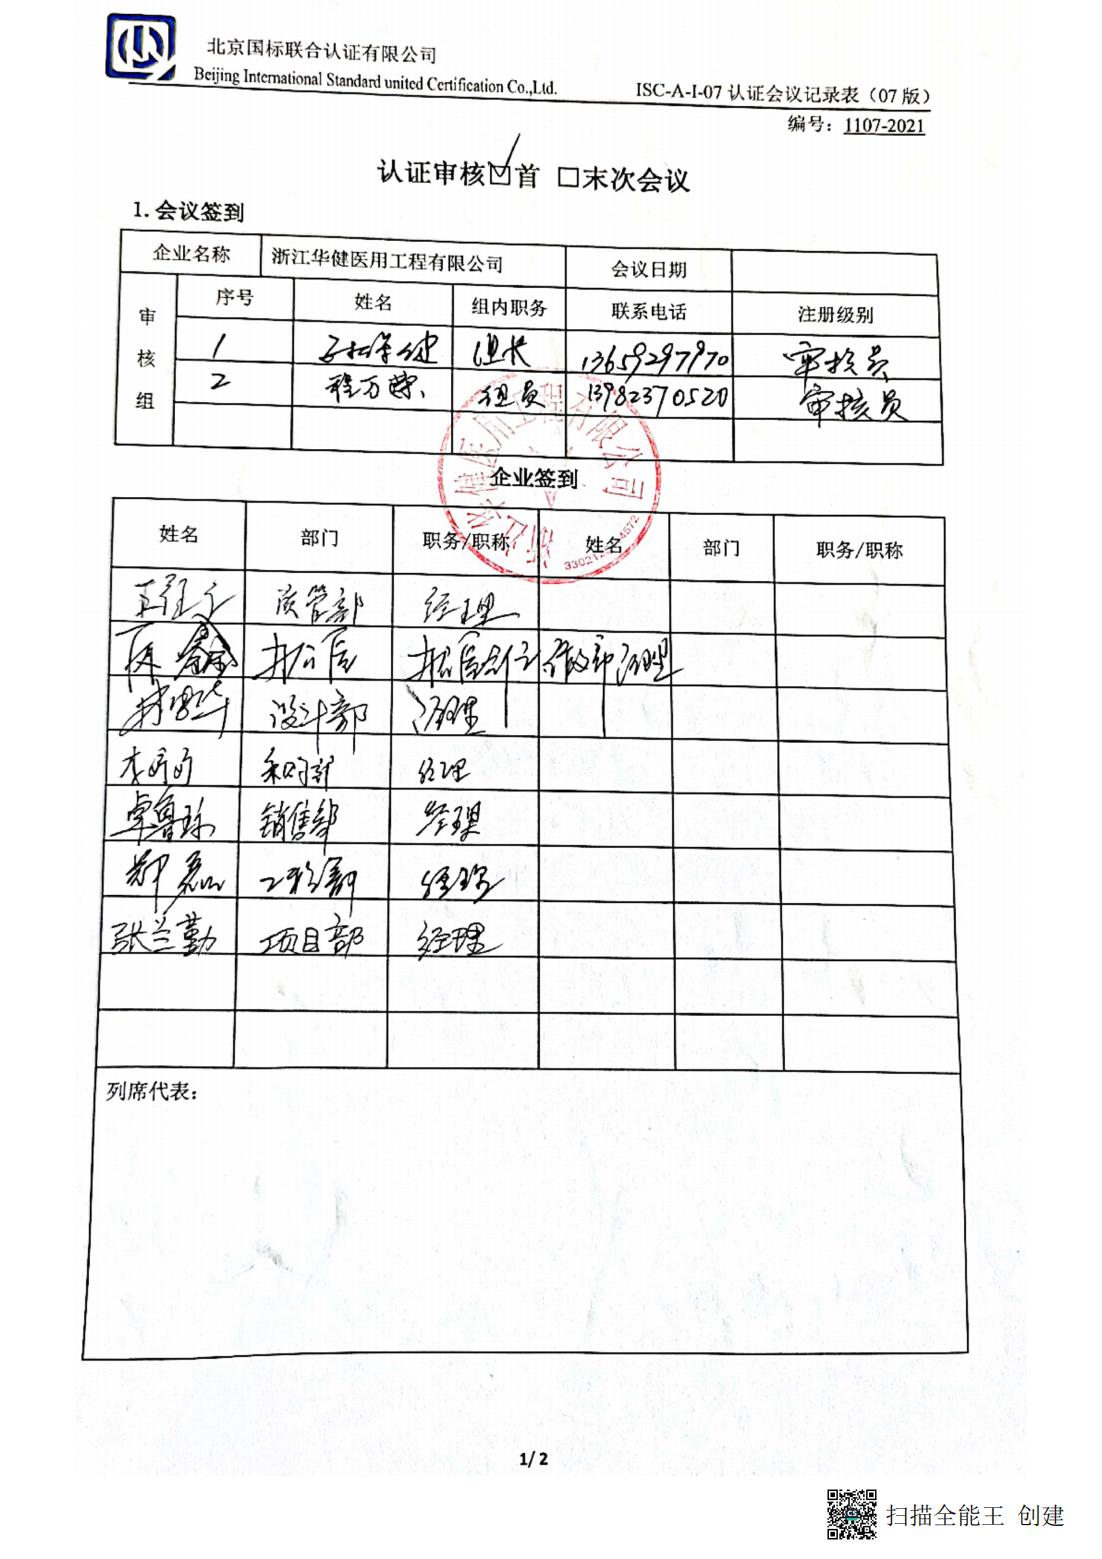 北京国标联合认证有限公司
Beijing International Standard united Certification Co.,Ltd.
ISC-A-I-07 认证会议记录表（07 版）
编号：1107-2021
认证审核☑首 □末次会议
1. 会议签到
企业名称 浙江华健医用工程有限公司 会议日期
审核组 序号 姓名 组内职务 联系电话 注册级别
1 组长 13659297970 审核员
2 程万 组员 13982370520 审核员
企业签到
姓名 部门 职务/职称 姓名 部门 职务/职称
质管部 经理
设计部 经理
李 采购部 经理
卓鲁珍 销售部 经理
郑磊 工程部 经理
张兰勤 项目部 经理
列席代表：
1/ 2
扫描全能王 创建